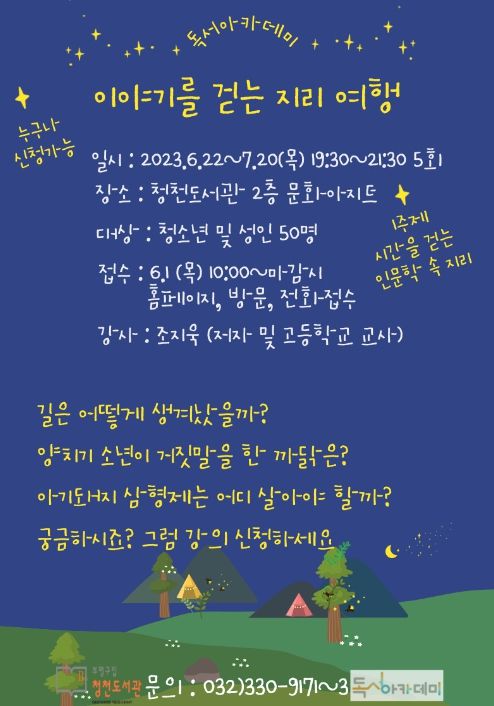 독서아카데미
이야기를 걷는 지리 여행
누구나
신청가능
일시 : 2023.6.22~7.20(목) 19:30~21:30 5회
장소 : 청천도서관 2층 문화아지트
대상 : 청소년 및 성인 50명
1주제
시간을 걷는
인문학 속 지리
접수 : 6.1 (목) 10:00~마감시
홈페이지, 방문, 전화접수
강사 : 조지욱 (저자 및 고등학교 교사)
길은 어떻게 생겨났을까?
양치기 소년이 거짓말을 한 까닭은?
아기돼지 삼형제는 어디 살아야 할까?
궁금하시죠? 그럼 강의 신청하세요
부평구립
청천도서관
문의 : 032)330-9171~3
독서아카데미